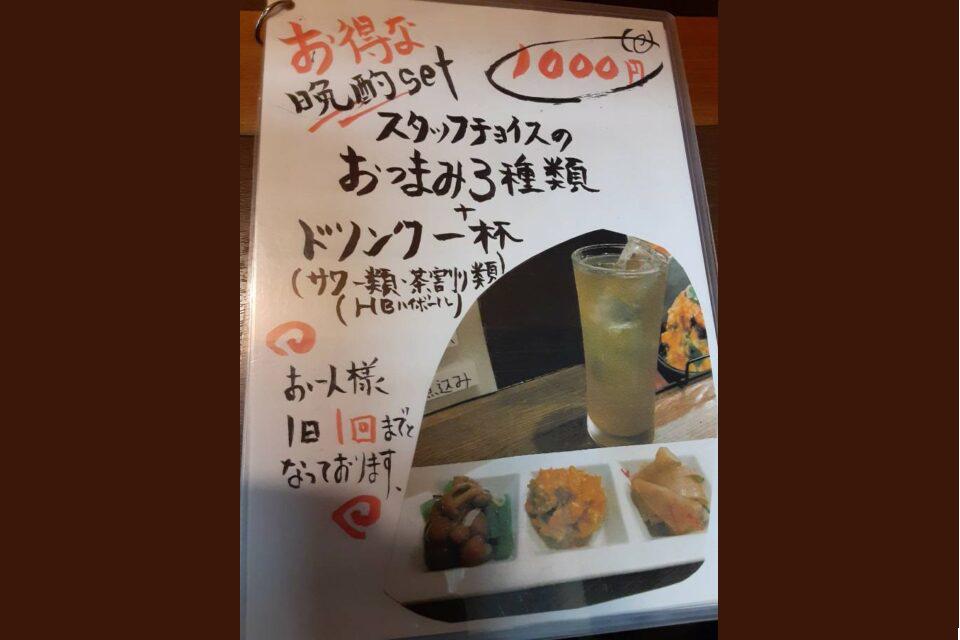 お得な
晩酌set
1000円
スタッフチョイスの
おつまみ3種類
+
ドリンク一杯
(サワー類・茶割り類)
(HBハイボール)
お一人様
1日1回までと
なっております、
煮込み